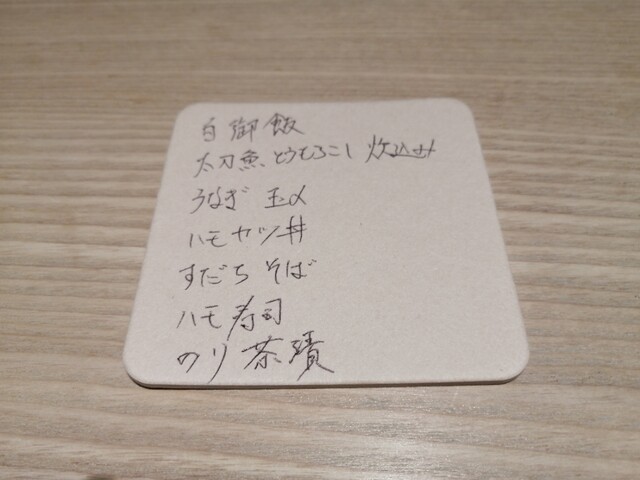 白御飯
太刀魚、とうもろこし 炊込み
うなぎ 玉〆
ハモカツ丼
すだちそば
ハモ寿司
のり茶漬